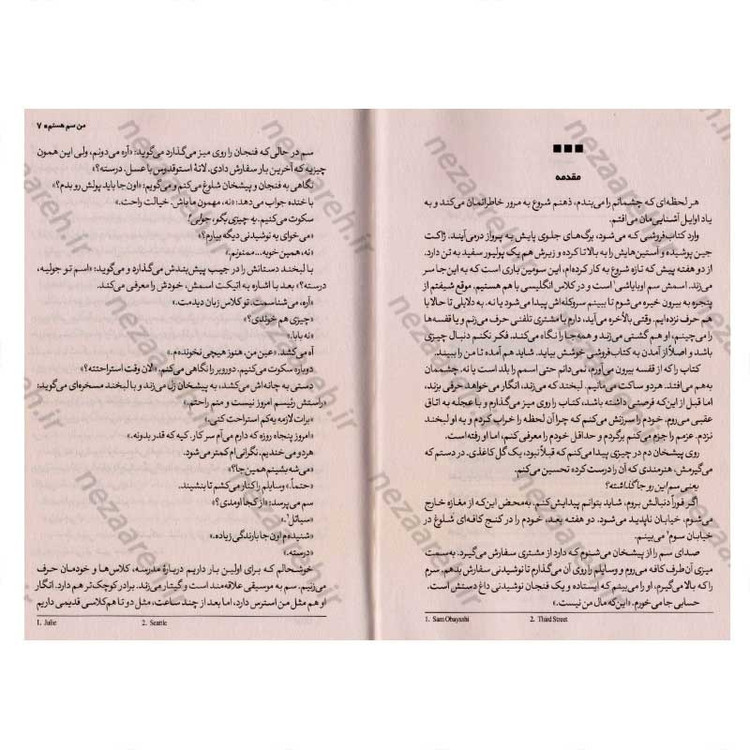 مقدمه
هر لحظه‌ای که چشمانم را می‌بندم، ذهنم شروع به مرور خاطراتمان می‌کند و به
یاد اوایل آشنایی‌مان می‌افتم.
وارد کتاب‌فروشی که می‌شود، برگ‌های جلوی پایش به پرواز درمی‌آیند. ژاکت
جین پوشیده و آستین‌هایش را به بالا تا کرده و زیرش هم یک پولیور سفید به تن دارد.
از دو هفته پیش که تازه شروع به کار کرده‌ام، این سومین باری است که به این‌جا سر
می‌زند. اسمش سم اوبایاشی¹ است و در کلاس انگلیسی با هم هستیم. موقع شیفتم از
پنجره به بیرون خیره می‌شوم تا ببینم سروکله‌اش پیدا می‌شود یا نه. به دلایلی تا حالا با
هم حرف نزده‌ایم. وقتی بالأخره می‌آید، دارم با مشتری تلفنی حرف می‌زنم و یا قفسه‌ها
را می‌چینم، او هم گشتی می‌زند و همه‌جا را نگاه می‌کند. فکر نکنم دنبال چیزی
باشد و اصلاً از آمدن به کتاب‌فروشی خوشش بیاید. شاید هم آمده تا من را ببیند.
کتاب را که از قفسه بیرون می‌آورم، نمی‌دانم حتی اسمم را بلد است یا نه. چشممان
به‌هم می‌افتد. هردو ساکت می‌مانیم. لبخند که می‌زند، انگار می‌خواهد حرفی بزند،
اما قبل از این‌که فرصتی داشته باشد، کتاب را روی میز می‌گذارم و با عجله به اتاق
عقبی می‌روم. خودم را سرزنش می‌کنم که چرا آن لحظه را خراب کردم و به او لبخند
نزدم. عزمم را جزم می‌کنم برگردم و حداقل خودم را معرفی کنم، اما او رفته است.
روی پیشخان دم در چیزی پیدا می‌کنم که قبلاً نبود، یک گل کاغذی. در دستم که
می‌گیرمش، هنرمندی که آن را درست کرده تحسین می‌کنم.
یعنی سم این رو جا گذاشته؟
اگر فوراً دنبالش بروم، شاید بتوانم پیدایش کنم. به‌محض این‌که از مغازه خارج
می‌شوم، خیابان ناپدید می‌شود. دو هفته بعد، خودم را در کنج کافه‌ای شلوغ در
خیابان سوم² می‌بینم.
صدای سم را از پیشخان می‌شنوم که دارد از مشتری سفارش می‌گیرد. به‌سمت
میزی آن طرف کافه می‌روم و وسایلم را روی آن می‌گذارم تا نوشیدنی سفارش بدهم. سرم
را که بالا می‌گیرم، او را می‌بینم که ایستاده و یک فنجان نوشیدنی داغ دستش است.
حسابی جا می‌خورم. «این‌که مال من نیست.»
1. Sam Obayashi 2. Third Street
من سم هستم ■ ۷
سم در حالی که فنجان را روی میز می‌گذارد می‌گوید: «آره می‌دونم، ولی این همون
چیزیه که آخرین بار سفارش دادی. لاتهٔ استوقدوس با عسل، درسته؟»
نگاهی به فنجان و پیشخان شلوغ می‌کنم و می‌گویم: «اون‌جا باید پولش رو بدم؟»
با خنده جواب می‌دهد: «نه، مهمون ما باش. خیالت راحت.»
سکوت می‌کنیم. یه چیزی بگو، جولی!
«می‌خوای یه نوشیدنی دیگه بیارم؟»
«نه، همین خوبه... ممنونم.»
با لبخند دستانش را در جیب پیش‌بندش می‌گذارد و می‌گوید: «اسم تو جولیه،
درسته؟» بعد با اشاره به اتیکت اسمش، خودش را معرفی می‌کند.
«آره، می‌شناسمت. تو کلاس زبان دیدمت.»
«چیزی هم خوندی؟»
«نه بابا.»
آه می‌کشد. «عین من. هنوز هیچی نخونده‌م.»
دوباره سکوت می‌کنیم. دوروبر را نگاهی می‌کنم. «الان وقت استراحتته؟»
دستی به چانه‌اش می‌کشد، به پیشخان زل می‌زند و با لبخند مسخره‌ای می‌گوید:
«راستش رئیسم امروز نیست و منم راحتم.»
«برات لازمه یه‌کم استراحت کنی.»
«امروز پنجاه روزه که دارم می‌آم سر کار. کیه که قدر بدونه.»
هردو می‌خندیم. نگرانی‌ام کمتر می‌شود.
«می‌شه بشینم همین‌جا؟»
«حتماً.» وسایلم را کنار می‌کشم تا بنشیند.
سم می‌پرسد: «از کجا اومدی؟»
«سیاتل².»
«شنیده‌م اون جا بارندگی زیاده.»
«درسته.»
خوشحالم که برای اولین بار داریم دربارهٔ مدرسه، کلاس‌ها و خودمان حرف
می‌زنیم. سم به موسیقی علاقه‌مند است و گیتار می‌زند. برادر کوچک‌تر هم دارد. انگار
او هم مثل من استرس دارد، اما بعد از چند ساعت، مثل دو تا هم‌کلاسی قدیمی داریم
1. Julie 2. Seattle
nezaareh.ir